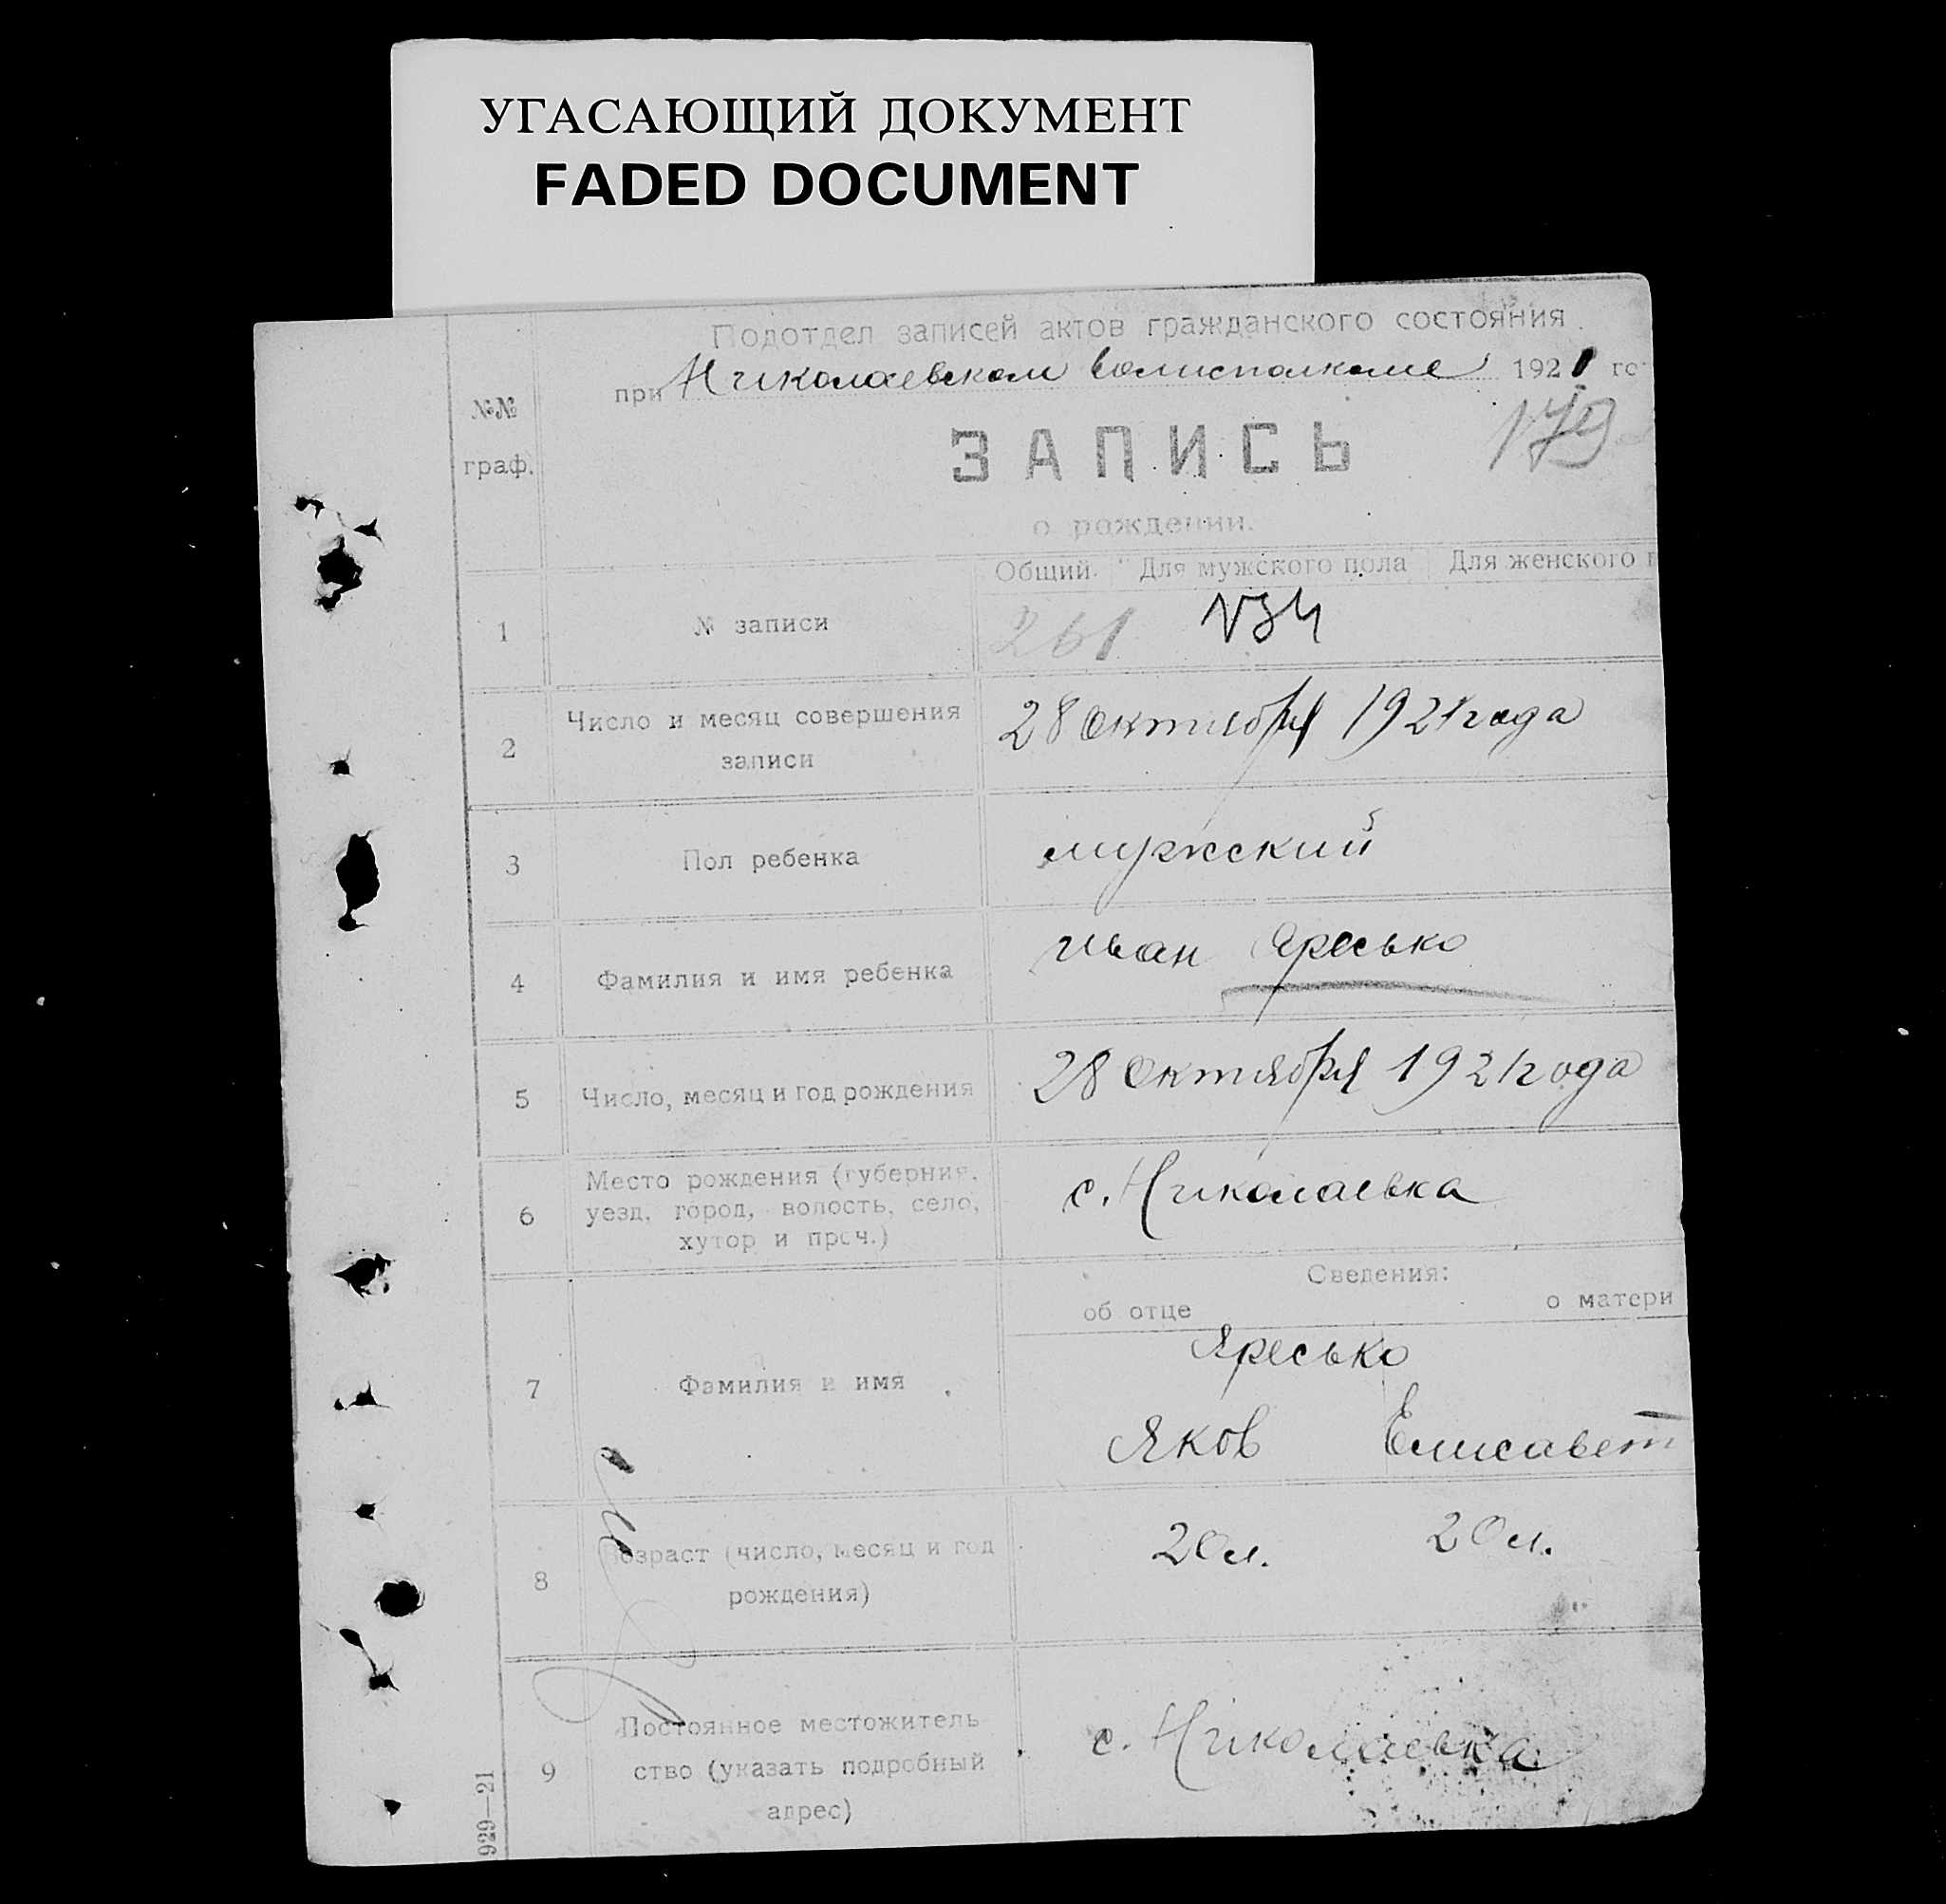 УГАСАЮЩИЙ ДОКУМЕНТ
FADED DOCUMENT
Подотдел записей актов гражданского состояния
при Николаевском Волисполкоме 1921 го
№№
граф.
ЗАПИСЬ
о рождении.
Общий. Для мужского пола Для женского п
1 № записи 261 №34
2 Число и месяц совершения
записи
28 Октября 1921 года
3 Пол ребенка мужский
4 Фамилия и имя ребенка Иван Яресько
5 Число, месяц и год рождения 28 Октября 1921 года
6 Место рождения (губерния,
уезд, город, волость, село,
хутор и проч.)
с. Николаевка
Сведения:
об отце о матери
Яресько
7 Фамилия и имя
Яков Елисавет
8 Возраст (число, месяц и год
рождения)
20 л. 20 л.
9 Постоянное местожитель
ство (указать подробный
адрес)
с. Николаевка
929—21